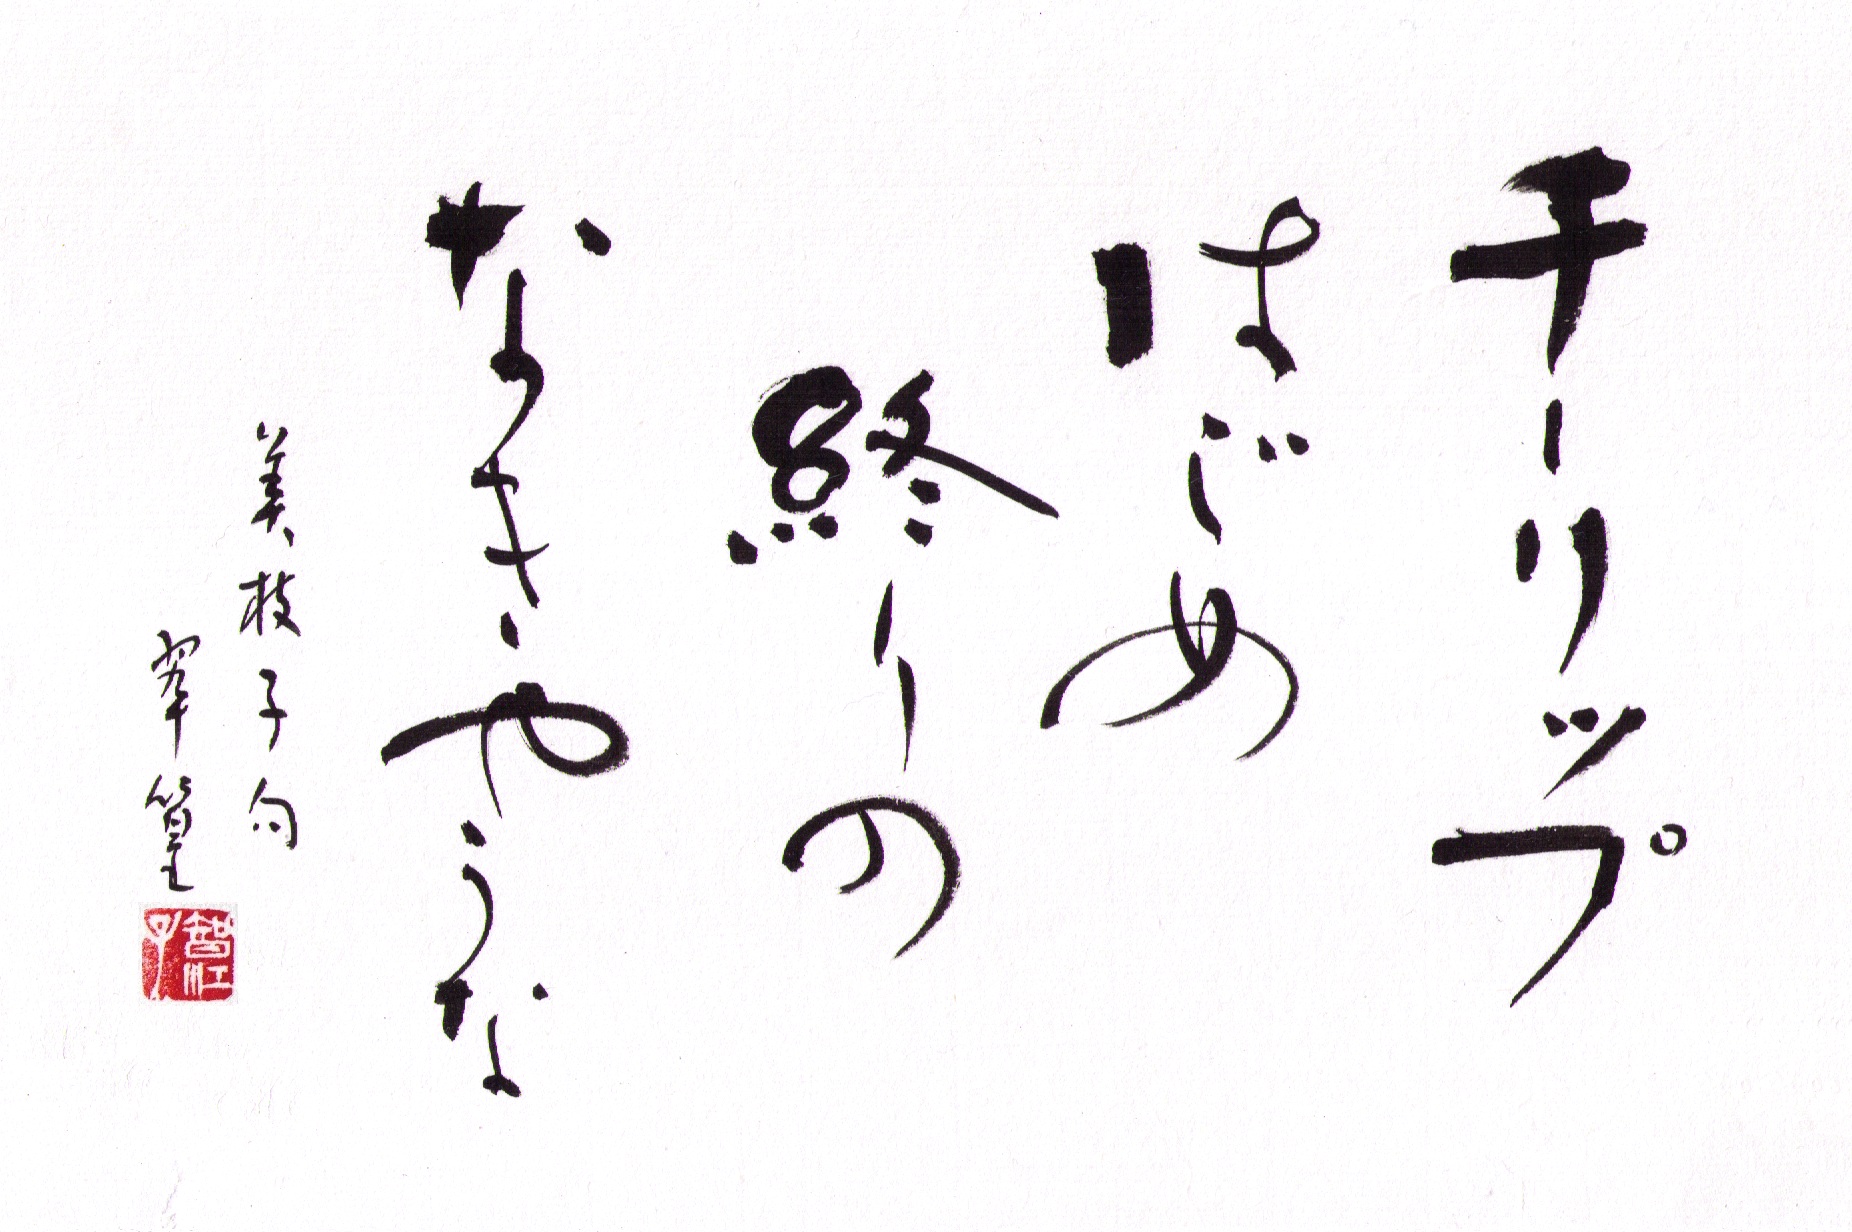 チーリップ
はじめ
終りの
なきやうな
美枝子句
翠篁
智江